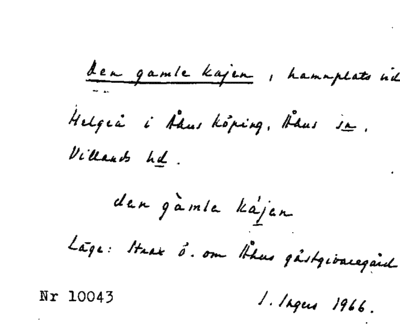 Den gamle kajen, hamnplats vid
Helgeå i Åhus köping, Åhus sn,
Villands hd.
den gàmle kájen
Läge: Strax ö. om Åhus gästgivaregård
Nr 10043 I. Ingers 1966.